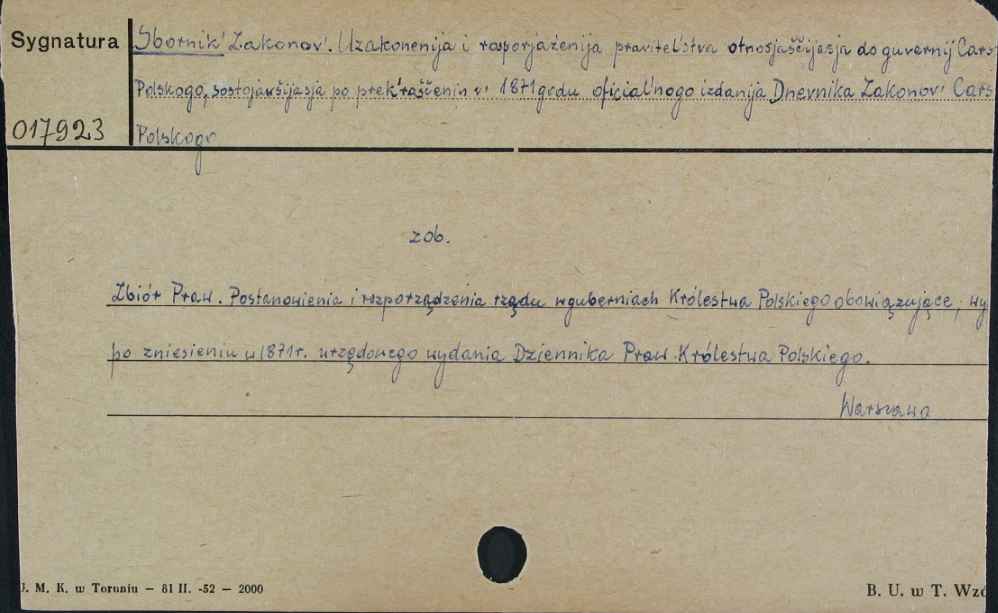 Sygnatura
017923
Sbornik' Zakonov'. Uzakonenija i rasporjaženija pravitel'stva otnosjaščijasja do gubernij Cars
Polskogo, sostojavšijasja po prekraščenin v' 1871 godu oficial'nogo izdanija Dnevnika Zakonov' Cars
Polskogo
zob.
Zbiór Praw. Postanowienia i rozporządzenia rządu w guberniach Królestwa Polskiego obowiązujące, wy
po zniesieniu w 1871 r. urzędowego wydania Dziennika Praw Królestwa Polskiego.
Warszawa
J. M. K. w Toruniu — 81 II. -52 — 2000
B. U. w T. Wzó